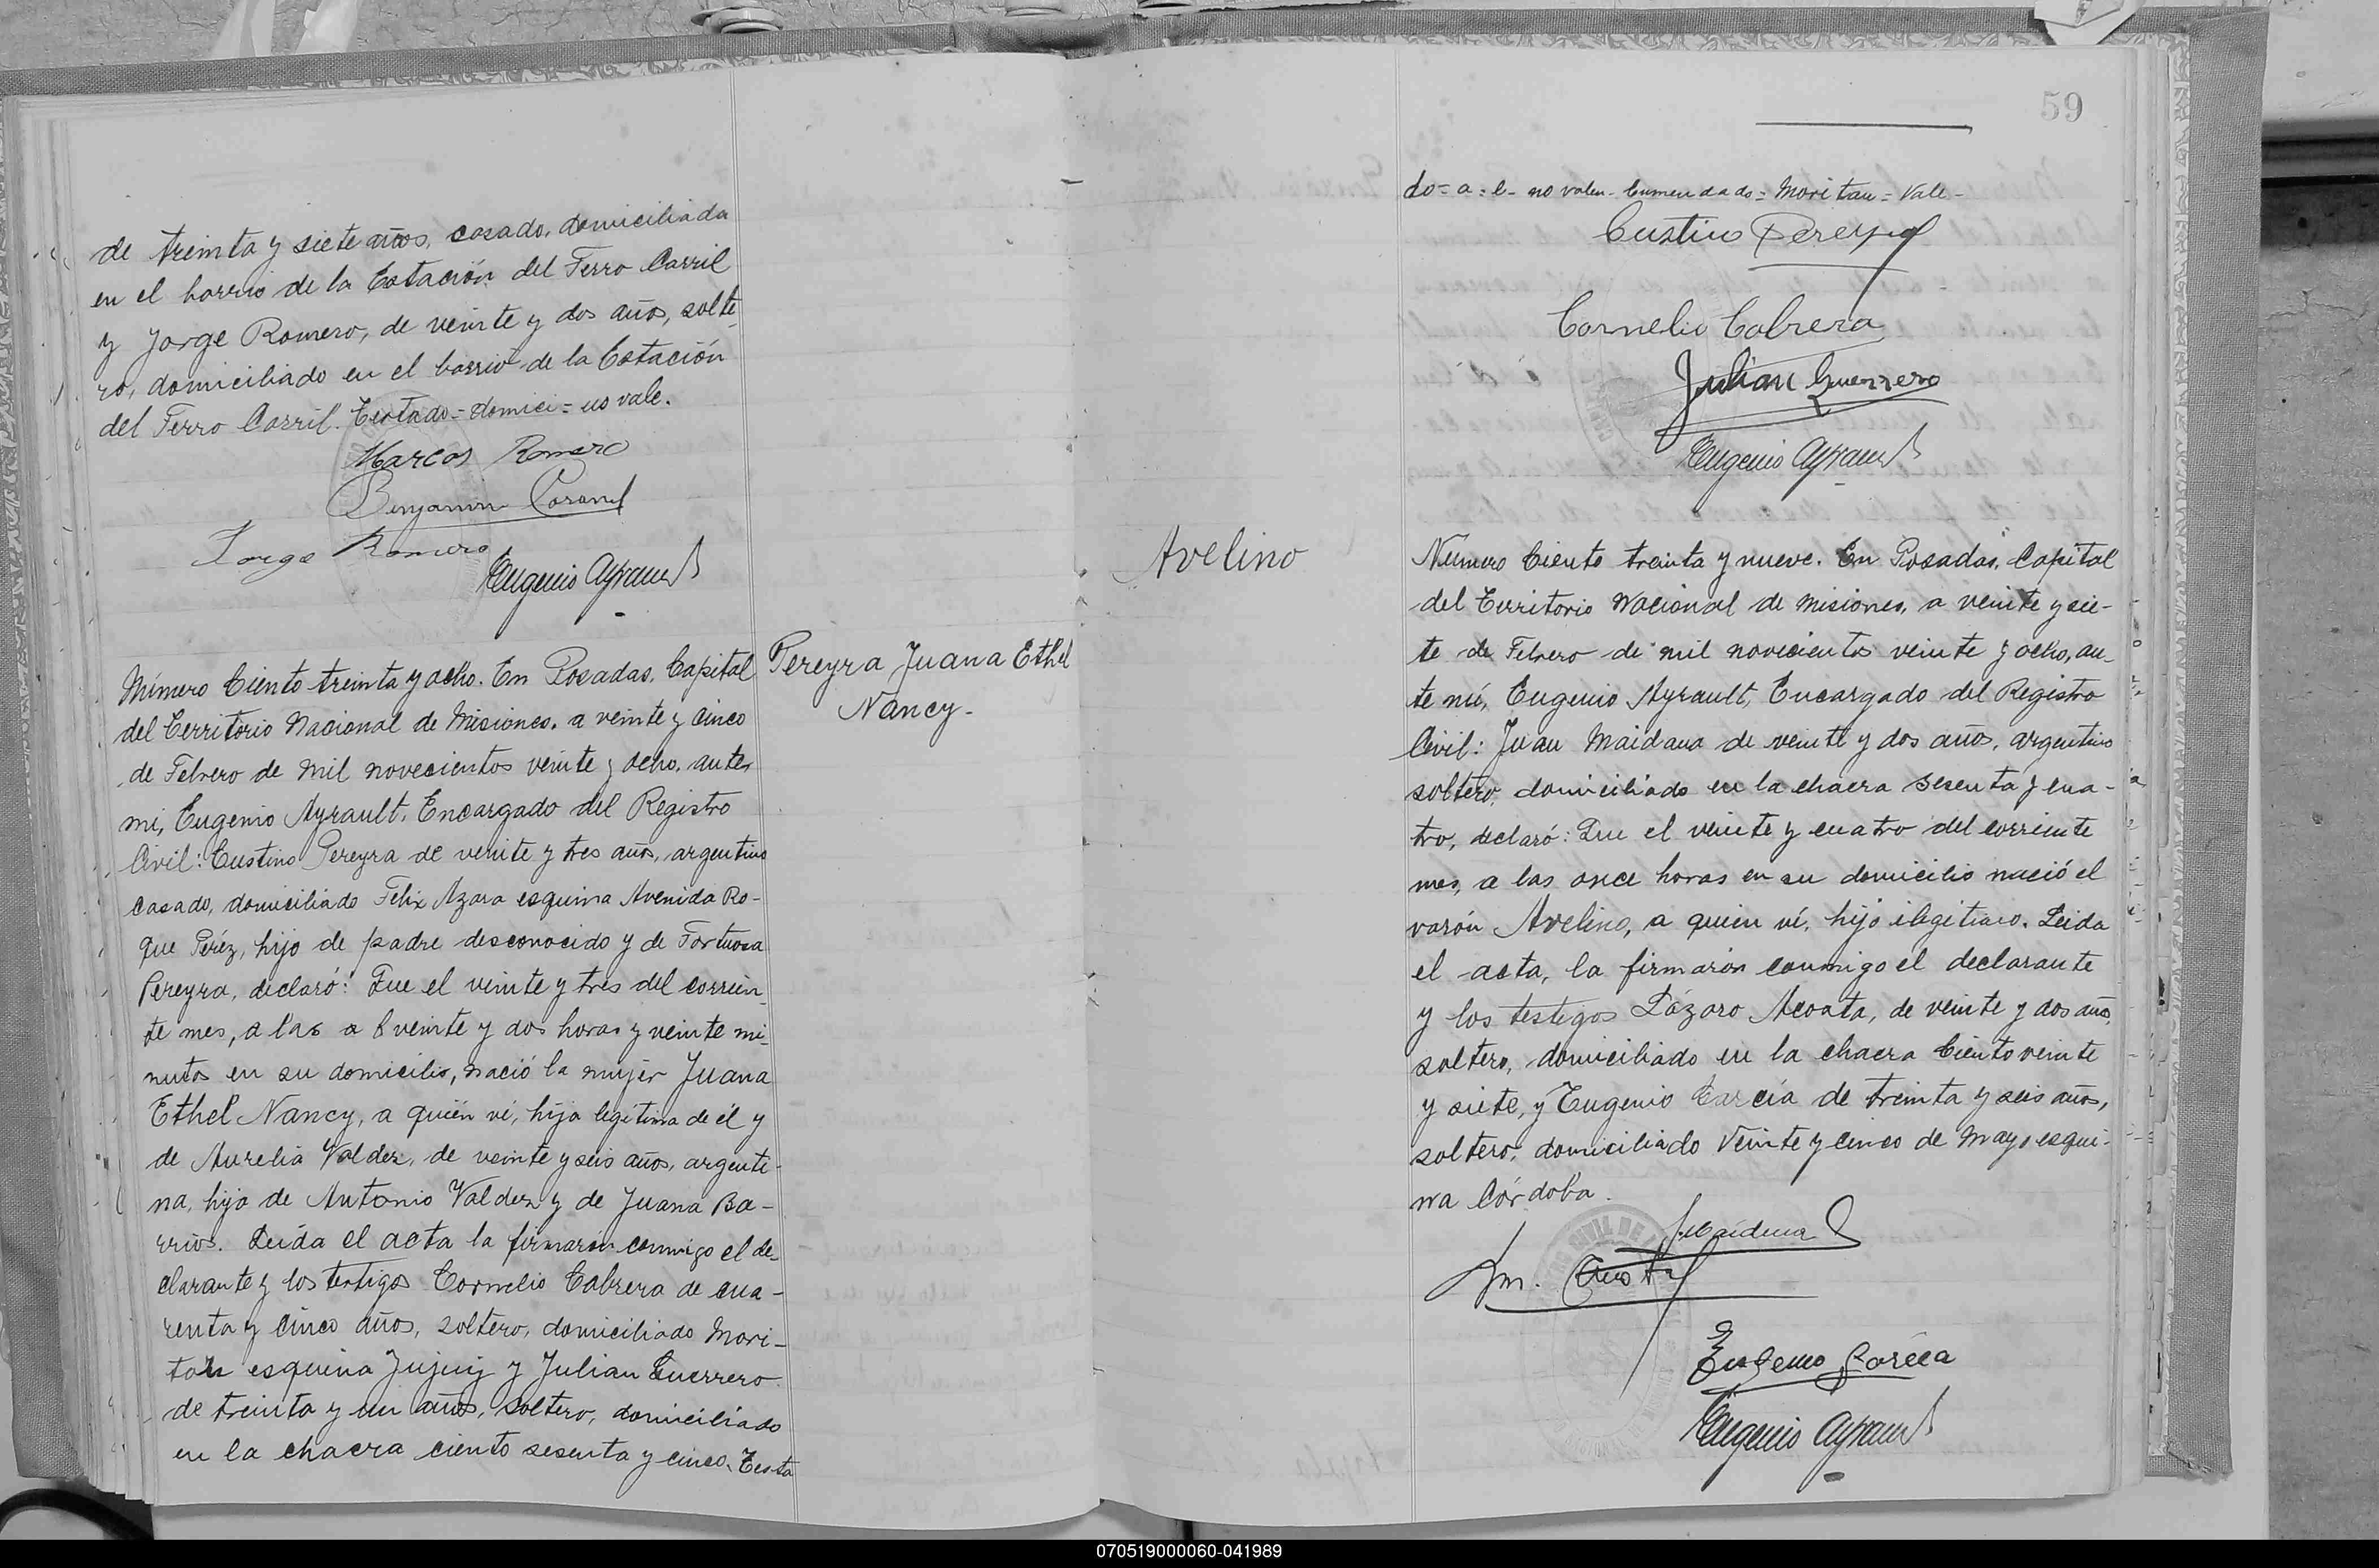 de treinta y siete años, casado, domiciliado
en el barrio de la Estación del Ferro Carril
y Jorge Romero, de veinte y dos años, solte
ro, domiciliado en el barrio de la Estación
del Ferro Carril. Testado = domici = no vale.
Marcos Romero
Benjamin
Jorge Romero
Eugenio Ayrault
Número Ciento treinta y ocho. En Posadas, Capital
del Territorio Nacional de Misiones, a veinte y cinco
de Febrero de mil novecientos veinte y ocho, ante
mi, Eugenio Ayrault, Encargado del Registro
Civil: Eustino Pereyra de veinte y tres años, argentino
casado, domiciliado Felix Azara esquina Avenida Ro-
que Peréz, hijo de padre desconocido y de Fortuosa
Pereyra, declaró: Que el veinte y tres del corrien
te mes, a las a l veinte y dos horas y veinte mi
nutos en su domicilio, nació la mujer Juana
Ethel Nancy, a quién ví, hija legítima de él y
de Aurelia Valdez, de veinte y seis años, argenti-
na, hija de Antonio Valdez y de Juana Ba-
rrios. Leída el acta la firmaron conmigo el de-
clarante y los testigos Cornelio Cabrera de cua-
renta y cinco años, soltero, domiciliado Mori-
tan esquina Jujuiy y Julian Guerrero
de treinta y un años, soltero, domiciliado
en la chacra ciento sesenta y cinco. Testa
Pereyra Juana Ethel
Nancy-
59
do = a = l - no valen - Enmendado = Moritan = Vale -
Eustino Pereyra
Cornelio Cabrera
Julian Guerrero
Eugenio Ayrault
Avelino
Número Ciento treinta y nueve. En Posadas, Capital
del Territorio Nacional de Misiones, a veinte y sie-
te de Febrero de mil novecientos veinte y ocho, an-
te mí, Eugenio Ayrault, Encargado del Registro
Civil: Juan Maidana de veinte y dos años, argentino
soltero, domiciliado en la chacra sesenta y cua-
tro, declaró: Que el veinte y cuatro del corriente
mes, a las once horas en su domicilio nació el
varón Avelino, a quien ví, hijo ilegitimo. Leida
el acta, la firmarón conmigo el declarante
y los testigos Lázaro Acosta, de veinte y dos años
soltero, domiciliado en la chacra Ciento veinte
y siete, y Eugenio García de treinta y seis años,
soltero, domiciliado Veinte y cinco de Mayo esqui-
na Córdoba.
J. Maidana
Eugenio García
Eugenio Ayrault
070519000060-041989